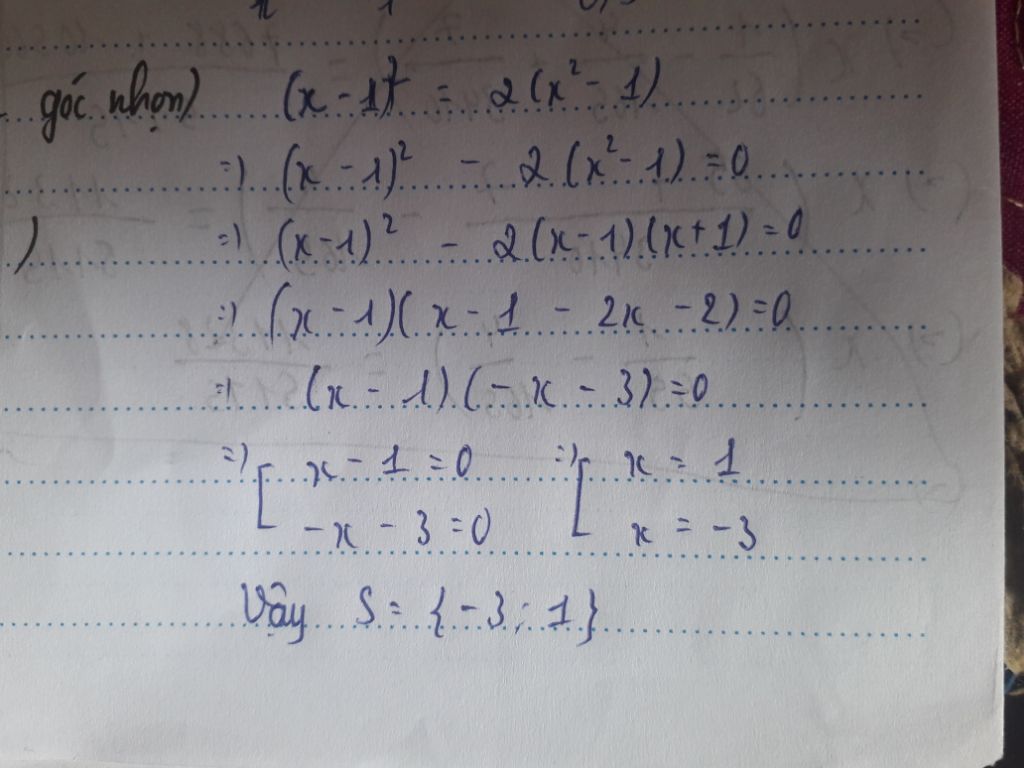 góc nhọn) (x - 1)² = 2(x² - 1)
=) (x - 1)² - 2(x² - 1) = 0
) =) (x - 1)² - 2(x - 1)(x + 1) = 0
=) (x - 1)(x - 1 - 2x - 2) = 0
=) (x - 1)(- x - 3) = 0
=) [ x - 1 = 0 =) [ x = 1
- x - 3 = 0 x = - 3
Vậy S = {- 3 ; 1}